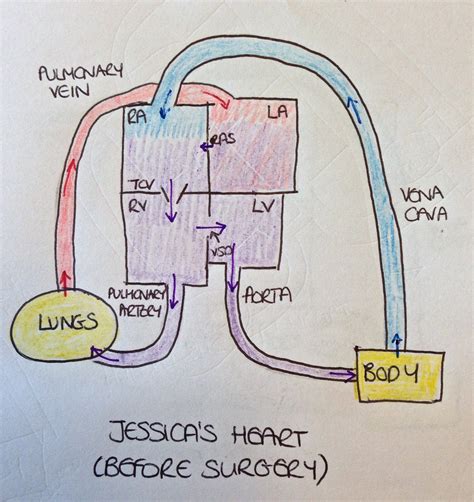 PULMONARY
VEIN
RA
LA
RAS
TCV
RV
LV
VSD
VENA
CAVA
PULMONARY
ARTERY
AORTA
LUNGS
BODY
JESSICA'S HEART
(BEFORE SURGERY)